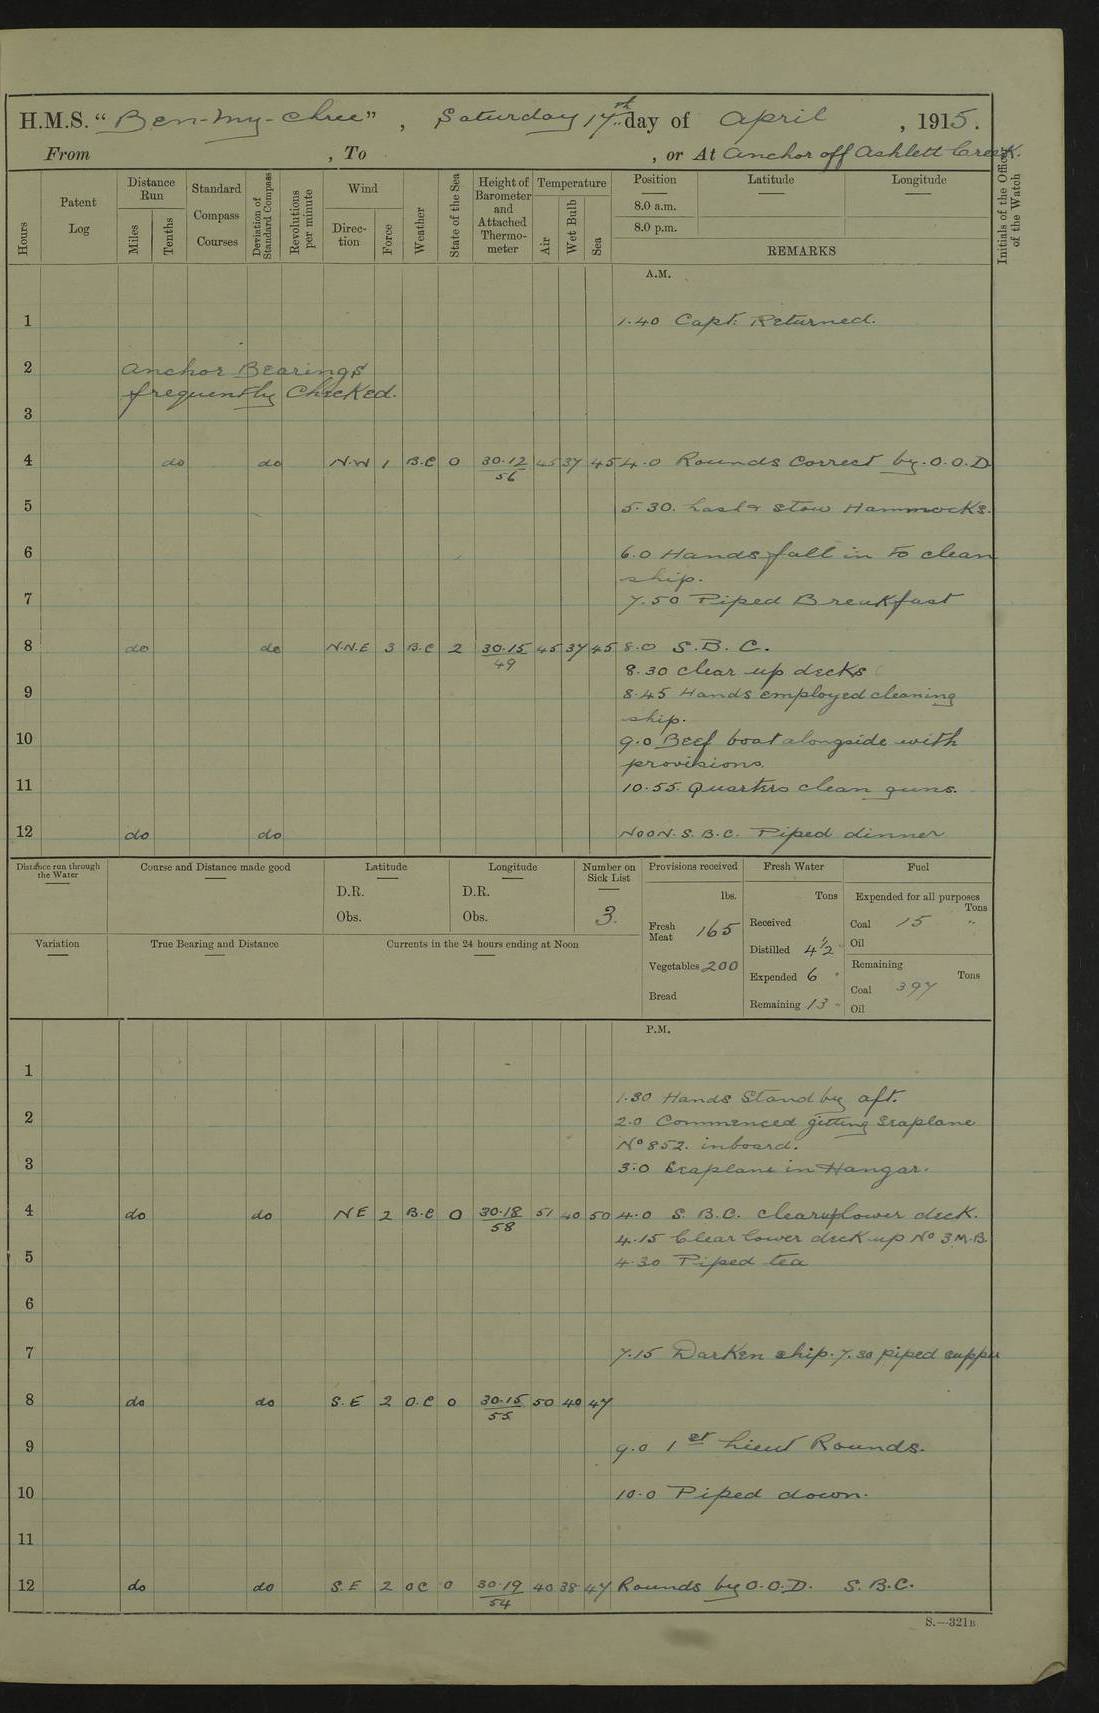 H.M.S. "Ben-my-Chree", Saturday 17th day of April, 1915.
From , To , or At Anchor off Ashlett Creek.
Hours
Patent Log
Distance Run
Miles
Tenths
Standard Compass Courses
Deviation of Standard Compass
Revolutions per minute
Wind
Direction
Force
Weather
State of the Sea
Height of Barometer and Attached Thermometer
Temperature
Air
Wet Bulb
Sea
Position
8.0 a.m.
8.0 p.m.
Latitude
Longitude
REMARKS
Initials of the Officer of the Watch
A.M.
1 1.40 Capt: Returned.
2 Anchor Bearings
frequently Checked.
3
4 do do N.W 1 B.C 0 30.12 56 45 37 45 4.0 Rounds Correct by O.O.D
5 5.30. Lash & stow Hammocks.
6 6.0 Hands fall in to clean
ship.
7 7.50 Piped Breakfast
8 do do N.N.E 3 B.C 2 30.15 49 45 37 45 8.0 S.B.C.
8.30 Clear up decks
9 8.45 Hands employed cleaning
ship.
10 9.0 Beef boat alongside with
provisions.
11 10.55. Quarters clean guns.
12 do do NOON. S.B.C. Piped dinner
Distance run through the Water
Course and Distance made good
Latitude
D.R.
Obs.
Longitude
D.R.
Obs.
Number on Sick List
3.
Provisions received
lbs.
Fresh Meat 165
Vegetables 200
Bread
Fresh Water
Tons
Received
Distilled 4½
Expended 6
Remaining 13
Fuel
Expended for all purposes
Tons
Coal 15 "
Oil
Remaining
Tons
Coal 397
Oil
Variation
True Bearing and Distance
Currents in the 24 hours ending at Noon
P.M.
1
1.30 Hands Stand by aft.
2 2.0 Commenced getting Seaplane
No 852. inboard.
3 3.0 Seaplane in Hangar.
4 do do NE 2 B.C 0 30.18 58 51 40 50 4.0 S.B.C. clear up lower deck.
4.15 Clear lower deck up No 3 M.B.
5 4.30 Piped tea
6
7 7.15 Darken ship. 7.30 piped supper
8 do do S.E 2 O.C 0 30.15 55 50 40 47
9 9.0 1st Lieut Rounds.
10 10.0 Piped down.
11
12 do do S.E 2 OC 0 30.19 54 40 38 47 Rounds by O.O.D. S.B.C.
S.—321B